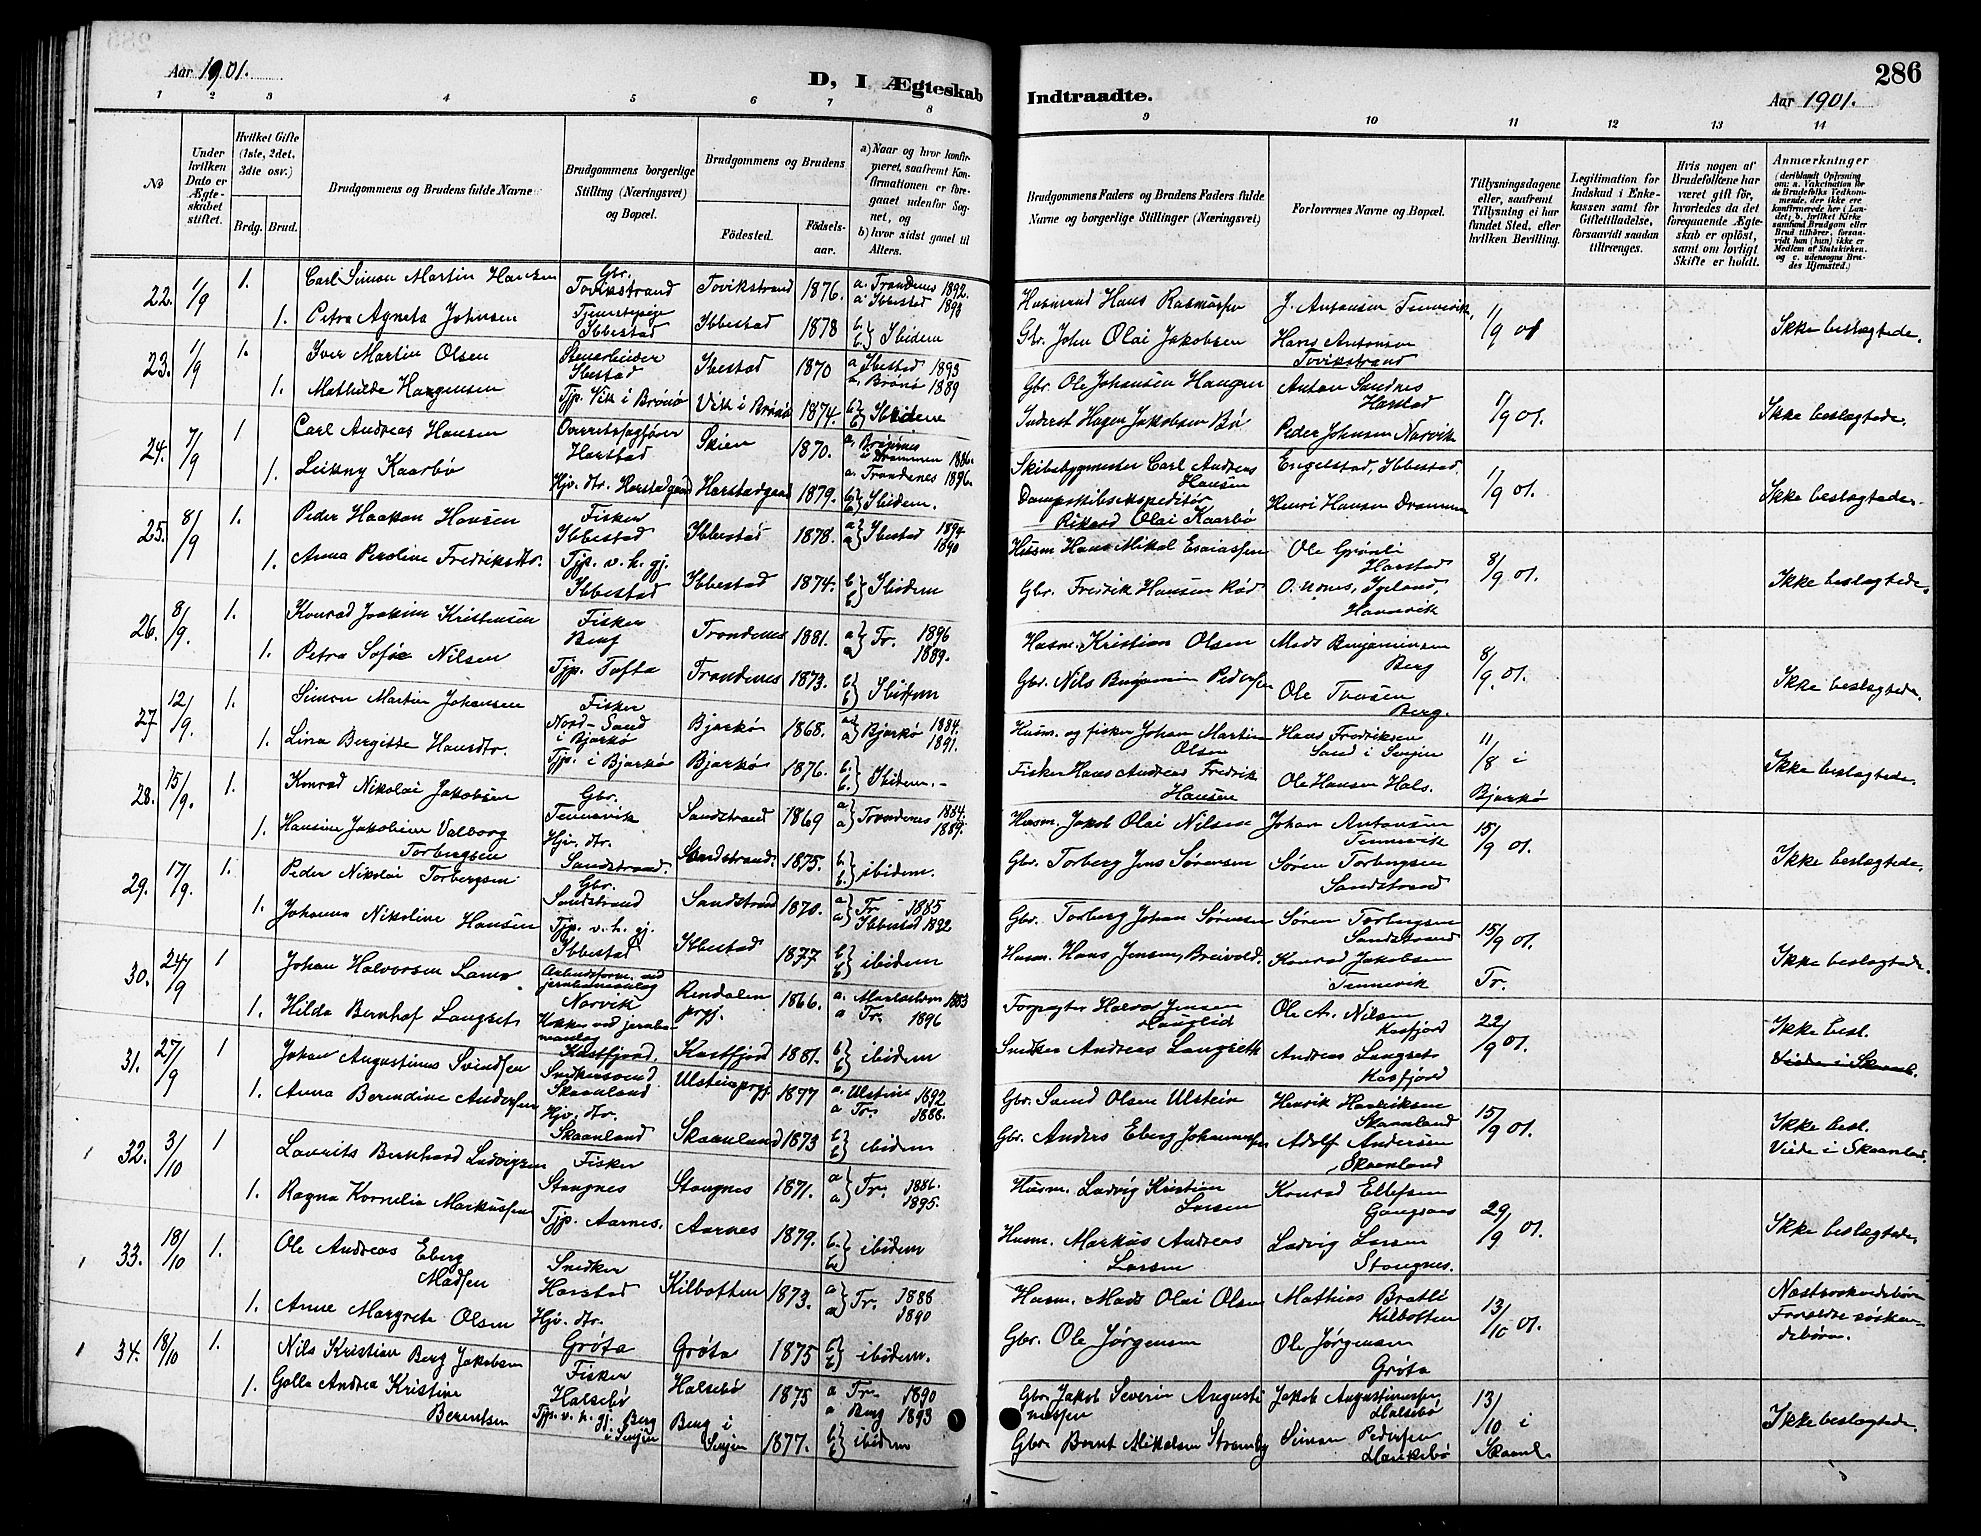 286
Aar 1901.
D, I Ægteskab
Indtraadte.
Aar 1901.
1 2 3 4 5 6 7 8
9 10 11 12 13 14
No
Under hvilken Dato er Ægteskabet stiftet.
Hvilket Gifte (1ste, 2det, 3die osv.)
Brdg. Brud.
Brudgommens og Brudens fulde Navne
Brudgommens borgerlige Stilling (Næringsvei) og Bopæl.
Brudgommens og Brudens
Fødested. Fødselsaar.
a) Naar og hvor konfirmeret, saafremt Konfirmationen er foregaaet udenfor Sognet, og
b) hvor sidst gaaet til Alters.
Brudgommens Faders og Brudens Faders fulde Navne og borgerlige Stillinger (Næringsvei)
Forlovernes Navne og Bopæl.
Tillysningsdagene eller, saafremt Tillysning ei har fundet Sted, efter hvilken Bevilling.
Legitimation for Indskud i Enkekassen samt for Giftetilladelse, forsaavidt saadan tiltrænges.
Hvis nogen af Brudefolkene har været gift før, hvorledes da det foregaaende Ægteskab er opløst, samt om lovligt Skifte er holdt.
Anmærkninger
(deriblandt Oplysning om: a. Vakcination for de Brudefolks Vedkommende, der ikke ere konfirmerede her i Landet; b. hvilket Kirkesamfund Brudgom eller Brud tilhører, forsaavidt han (hun) ikke er Medlem af Statskirken, og c. udensogns Brudes Hjemsted.)
22. 1/9 1. Carl Simon Martin Hansen Gbr. Tovikstrand Tovikstrand 1876. a. Trondenes 1892. a. Ibbestad 1893
Husmand Hans Rasmussen J. Antonsen Tennevik, 1/9 01
1. Petra Agneta Johnsen Tjenestepige Ibbestad Ibbestad 1878 b. b. } Ibidem
Gbr. John Olai Jakobsen Hans Antonsen Tovikstrand Ikke beslægtede.
23. 1/9 1. Iver Martin Olsen Stenarbeider Ibestad Ibestad 1870 a Ibestad 1893 a. Brønø 1889
Gbr. Ole Johansen Anton Sandnes Harstad 1/9 01.
1. Mathilde Hagensen Tjp. Vik i Brønø Vik i Brønø 1874. b. b. } Ibidem
Inderst Hagen Jakobsen Bø Peder Johnsen Narvik Ikke beslægtede.
24. 7/9 1 Carl Andreas Hansen Overretssagfører Harstad Skien 1870. a. Drammen 1886. a. Trondenes 1896.
Skibsbygmester Carl Andreas Hansen Engelstad, Ibbestad. 1/9 01.
1. Leikny Kaarbø Hjv. dtr. Harstadgaard Harstadgaard 1879. b. b. } Ibidem.
Dampskibsexpeditør Rikard Olai Kaarbø Henri Hansen Drammen Ikke beslægtede.
25. 8/9 1. Peder Haakon Hansen Fisker Ibbestad Ibbestad 1878. a a } Ibestad 1894 1890
Husm Hans Mikal Esaiassen Ole Grønli Harstad 8/9 01.
1. Anna Peroline Fredriksdtr. Tjp. v. h. gj. Ibbestad Ibbestad 1874. b. b. } Ibidem
Gbr. Fredrik Hansen Rød Hamnvik Ikke beslægtede.
26. 8/9. 1. Konrad Joakim Kristensen Fisker Berg Trondenes 1881. a a } Tr. 1896 1889.
Husm. Kristian Olsen Mads Benjaminsen Berg 8/9. 01.
1. Petra Sofie Nilsen Tjp. Tofta Trondenes 1873. b. b. } Ibidem
Gbr. Nils Benjamin Pedersen Ole Tovsen Berg. Ikke beslægtede.
27 12/9. 1. Simon Martin Johansen Fisker Nord-Sand i Bjarkø Bjarkø 1868. a a } Bjarkø 1884. 1891.
Husm. og fisker Johan Martin Olsen Hans Fredriksen Sand i Senjen 11/8 i Bjarkø
1. Lina Bergitte Hansdtr. Tjp. i Bjarkø Bjarkø 1876. b. b. } Ibidem.
Fisker Hans Andreas Fredrik Hansen Ole Hansen Hals. Ikke beslægtede.
28. 15/9. 1. Konrad Nikolai Jakobsen Gbr. Tennevik Sandstrand 1869 a a } Trondenes 1884. 1889.
Husm. Jakob Olai Nilsen Johan Antonsen Tennevik 15/9 01.
1. Hansine Jakobine Valborg Torbergsen Hjv. dtr. Sandstrand. Sandstrand. 1875. b. b. } ibidem.
Gbr. Torberg Jens Sørensen Søren Torbergsen Sandstrand Ikke beslægtede.
29. 17/9. 1. Peder Nikolai Torbergsen Gbr. Sandstrand Sandstrand 1870. a Tr. 1885 a Ibbestad 1892
Gbr. Torberg Johan Sørensen Søren Torbergsen Sandstrand 15/9 01. Tr.
1. Johanna Nikoline Hansen Tjp. v. h. gj. Ibbestad Ibbestad 1877 b. b. } ibidem
Husm. Hans Jensen, Breivold. Konrad Jakobsen Tennevik Ikke beslægtede.
30. 24/9 1 Johan Halvorsen Arbeidsform. ved jernbaneanlæg Narvik Rendalen prgj. 1866. a. 1883 a Tr. 1896
Forpagter Halvor Jensen Hauglid Ole A. Nilsen Kasfjord 22/9 01.
1. Hilda Bernhof Langset Kokke ved jernbaneanlæg Kastfjord. Kastfjord 1881. b. b. } ibidem
Snedker Andreas Langseth Andreas Langset Kasfjord Ikke besl.
Viede i Skaanl.
31. 27/9 1 Johan Augustinus Svendsen Snedkersvend Skaanland Ulstein prgj 1877 a. Ulstein 1892 a Tr. 1888.
Gbr. Svend Olsen Ulstein Henrik Henriksen Skaanland 15/9 01.
1. Anna Berendine Andersen Hjv. dtr. Skaanland Skaanland 1873 b. b. } ibidem
Gbr. Anders Eberg Johannessen Adolf Andersen Skaanland Ikke besl. Viede i Skaanland.
32. 3/10 1 Laurits Bernhard Ludvigsen Fisker Stangnes Stangnes 1871. a a } Tr. 1886. 1895.
Husm. Ludvig Kristian Larsen Konrad Ellefsen Gangsaas 29/9 01.
1. Ragna Kornelia Markussen Tjp. Aarnes. Aarnes 1879. b. b. } ibidem
Husm. Markus Andreas Larsen Ludvig Larsen Stangnes. Ikke beslægtede.
33. 18/10 1. Ole Andreas Eberg Madsen Snedker Harstad Kilbotten 1873. a a } Tr. 1888 1890
Husm. Mads Olai Olsen Mathias Bratli Kilbotten 13/10 01.
1. Anne Margrete Olsen Hjv. dtr. Grøta Grøta 1875 b. b. } ibidem.
Gbr. Ole Jørgensen Ole Jørgensen Grøta Næstsøskendebørn Forældre søskendebørn.
34. 18/10 1. Nils Kristian Berg Jakobsen Fisker Halsebø Halsebø 1875 a Tr. 1890 a Berg 1893
Gbr. Jakob Severin Augustinussen Jakob Augustinussen Halsebø 13/10 i Skaanl.
1. Golla Andrea Kristine Berentsen Tjp. v. h. gj. Berg i Senjen Berg i Senjen 1877. b. b. } ibidem
Gbr. Bernt Mikalsen Simon Pedersen Ikke beslægtede.